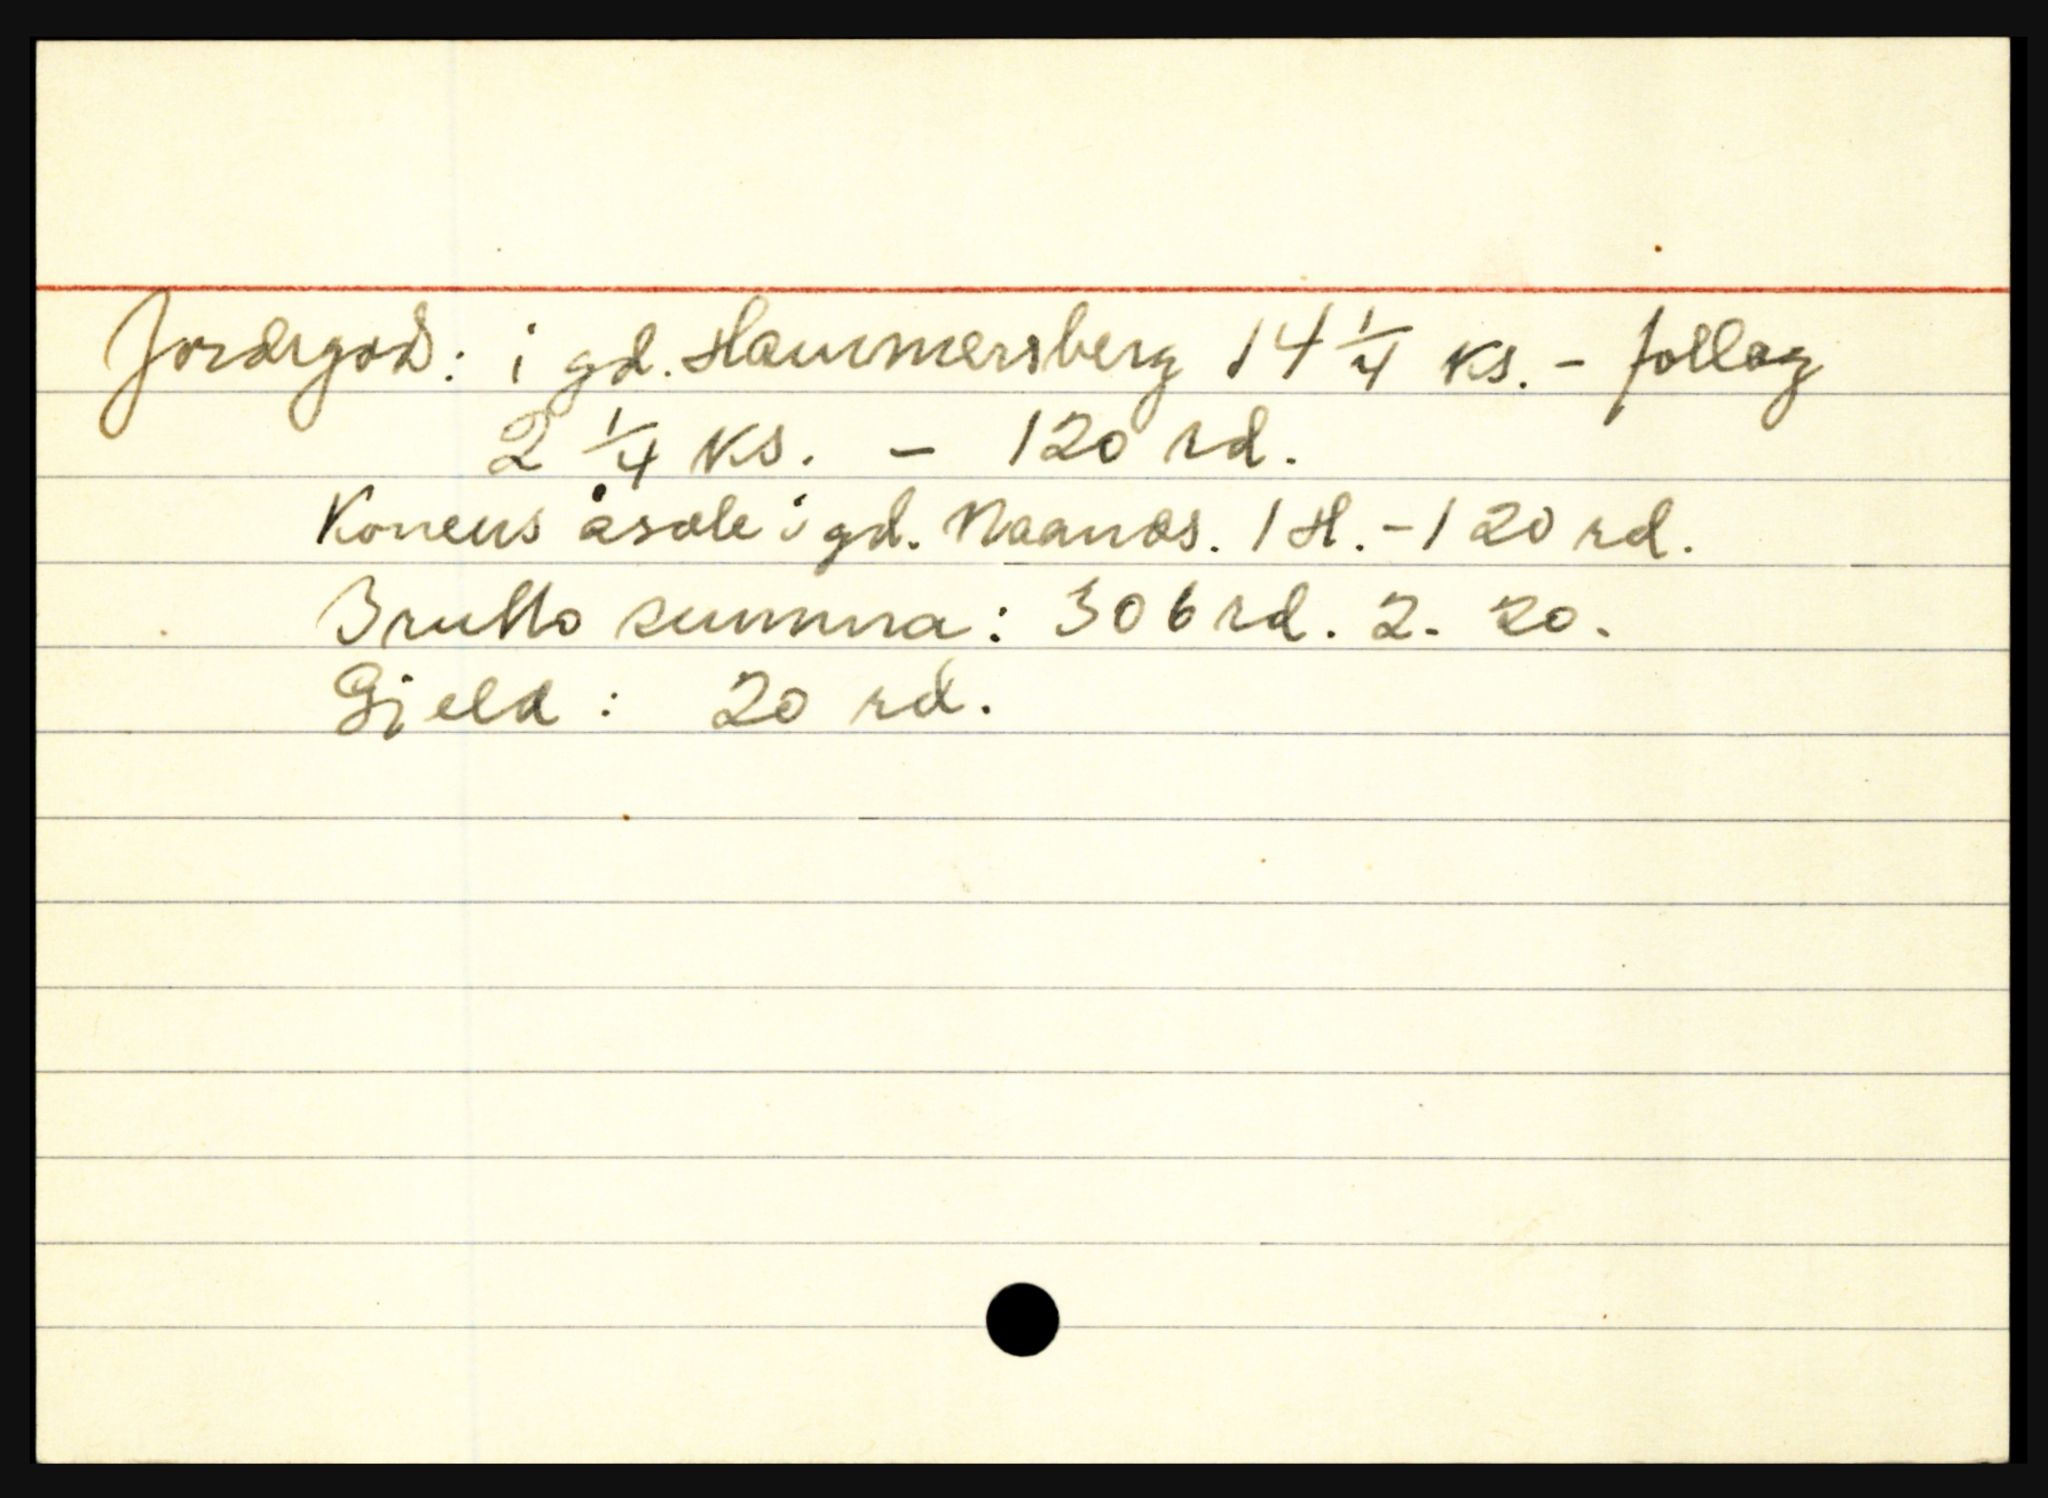 Jordegods: i gd. Hammersberg 14 1/4 ks. - follag
2 1/4 ks. - 120 rd.
Konens åsæle i gd. 1 H. - 120 rd.
Brutto summa: 306 rd. 2. 20.
Gjeld: 20 rd.